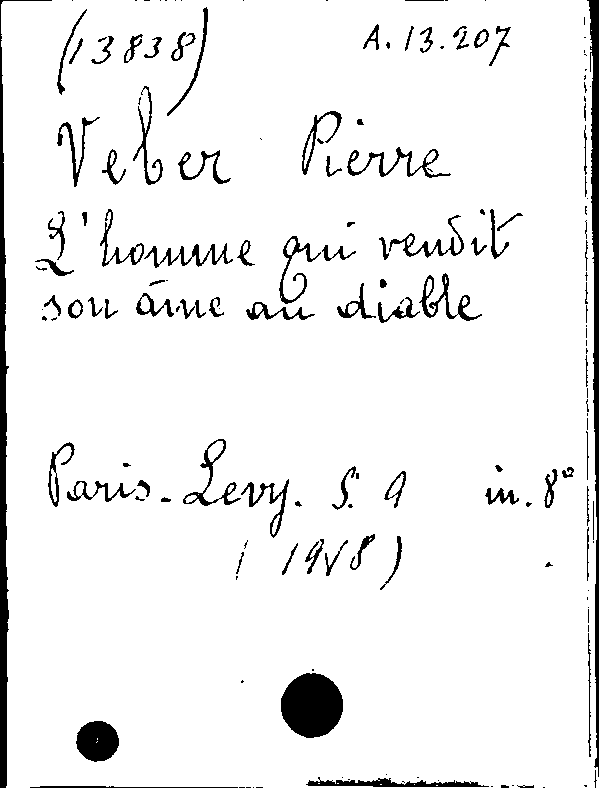 (13838) A.13.207
Veber Pierre
L'homme qui vendit
son âme au diable
Paris. Levy. S. d in. 8°
(1918)